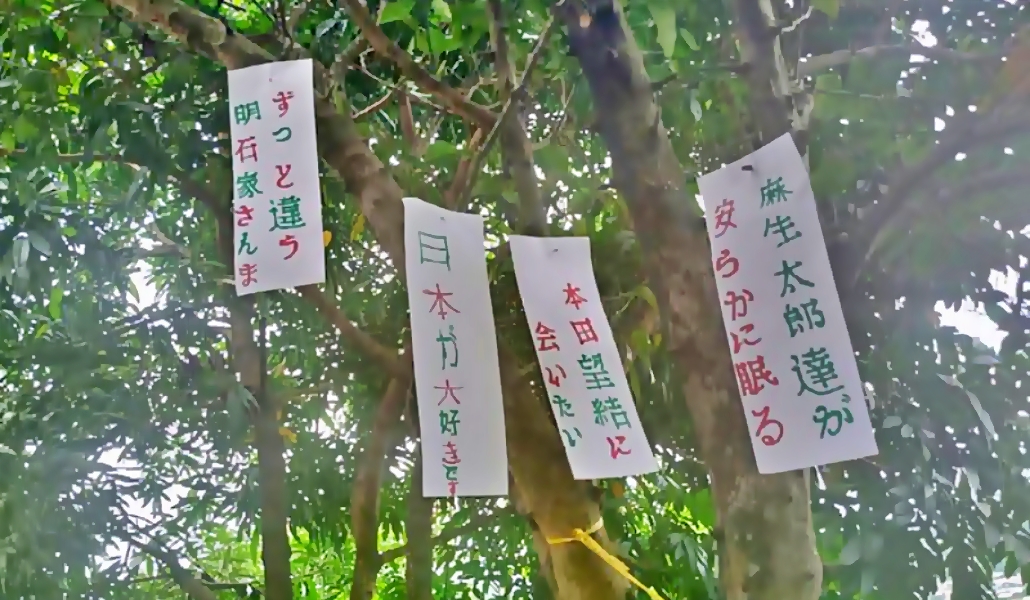 ずっと違う
明石家さんま
日本が大好きです
本田望結に
会いたい
麻生太郎達が
安らかに眠る